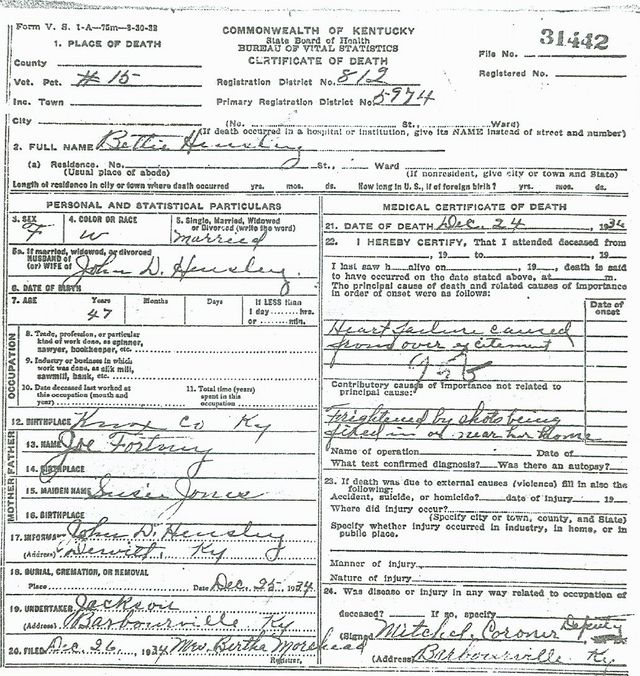 Form V. S. 1-A—75m—8-30-32
COMMONWEALTH OF KENTUCKY
State Board of Health
BUREAU OF VITAL STATISTICS
CERTIFICATE OF DEATH
File No. 31442
Registered No.
1. PLACE OF DEATH
County
Vot. Pct. #15
Inc. Town
City
Registration District No. 812
Primary Registration District No. 5974
(No. St., Ward)
(If death occurred in a hospital or institution, give its NAME instead of street and number)
2. FULL NAME Bettie Hensley
(a) Residence. No. St., Ward
(Usual place of abode) (If nonresident, give city or town and State)
Length of residence in city or town where death occurred yrs. mos. ds. How long in U. S., if of foreign birth? yrs. mos. ds.
PERSONAL AND STATISTICAL PARTICULARS
3. SEX F
4. COLOR OR RACE W
5. Single, Married, Widowed or Divorced (write the word) Married
5a. If married, widowed, or divorced
HUSBAND of
(or) WIFE of John D. Hensley
6. DATE OF BIRTH
7. AGE Years 47 Months Days If LESS than
1 day hrs.
or min.
OCCUPATION
8. Trade, profession, or particular
kind of work done, as spinner,
sawyer, bookkeeper, etc.
9. Industry or business in which
work was done, as silk mill,
sawmill, bank, etc.
10. Date deceased last worked at
this occupation (month and
year)
11. Total time (years)
spent in this
occupation
12. BIRTHPLACE Knox Co Ky
FATHER
13. NAME Joe
14. BIRTHPLACE
MOTHER
15. MAIDEN NAME Susie Jones
16. BIRTHPLACE
17. INFORMANT John D. Hensley
(Address) Dewitt, Ky
18. BURIAL, CREMATION, OR REMOVAL
Place Date Dec. 25, 1934
19. UNDERTAKER Jackson
(Address) Barbourville Ky
20. FILED Dec. 26, 1934 Mrs. Bertha Morehead
Registrar.
MEDICAL CERTIFICATE OF DEATH
21. DATE OF DEATH Dec. 24, 1934
22. I HEREBY CERTIFY, That I attended deceased from
, 19 to , 19
I last saw h alive on , 19 , death is said
to have occurred on the date stated above, at m.
The principal cause of death and related causes of importance
in order of onset were as follows:
Date of
onset
Heart failure caused
from over excitement
Contributory causes of importance not related to
principal cause:
Frightened by shots being
fired in or near her home
Name of operation Date of
What test confirmed diagnosis? Was there an autopsy?
23. If death was due to external causes (violence) fill in also the
following:
Accident, suicide, or homicide? date of injury 19
Where did injury occur?
(Specify city or town, county, and State)
Specify whether injury occurred in industry, in home, or in
public place.
Manner of injury
Nature of injury
24. Was disease or injury in any way related to occupation of
deceased? If so, specify
(Signed Mitchel, Coroner Deputy
(Address) Barbourville Ky